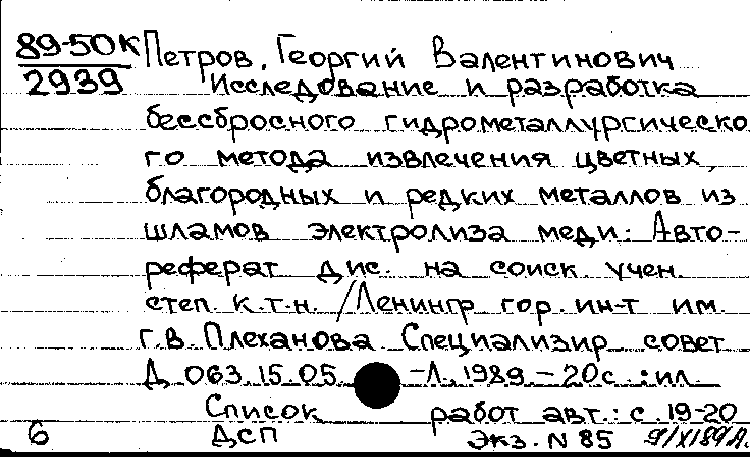 89-50К Петров, Георгий Валентинович
2939 Исследование и разработка
бессбросного гидрометаллургическо
го метода извлечения цветных,
благородных и редких металлов из
шламов электролиза меди: Авто-
реферат дис. на соиск. учен.
степ. к.т.н. /Ленингр гор. ин-т им.
Г.В. Плеханова. Специализир совет
Д 063.15.05. -Л., 1989. - 20с. : ил.
Список работ авт.: с. 19-20
6 ДСП Экз. N 85 9/XI89